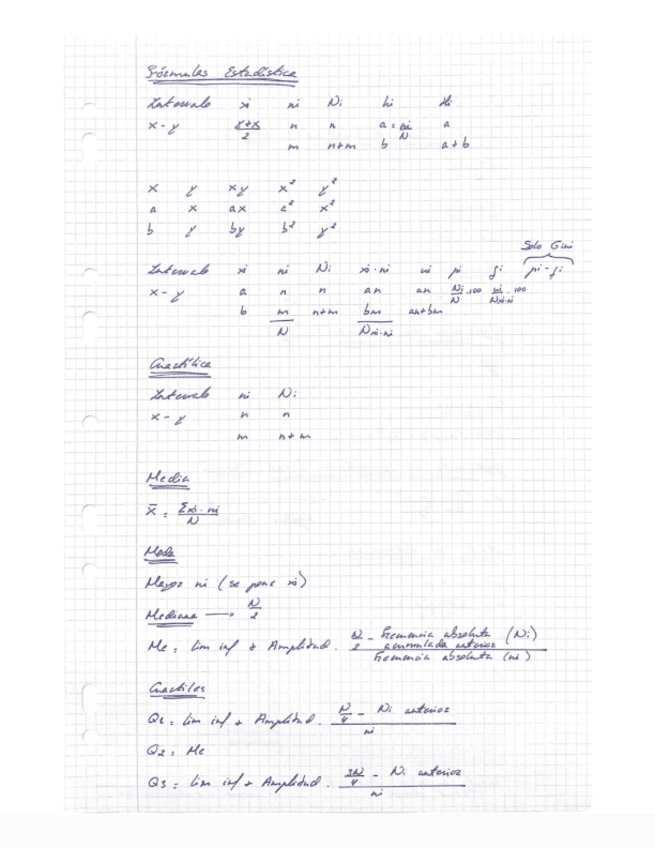 Fórmulas Estadística
Intervalo xi ni Ni hi Hi
x - y (y+x)/2 n n a = ni/N a
m n+m b a+b
x y xy x² y²
a x ax a² x²
b y by b² y²
Solo Gini
Intervalo xi ni Ni xi·ni ui pi qi pi-qi
x - y a n n an an Ni/N·100 ui/Nxi·ni·100
b m n+m bm an+bm
N Nxi·ni
Cuartílica
Intervalo ni Ni
x - y n n
m n+m
Media
x̄ = Σxi·ni/N
Moda
Mayor ni (se pone xi)
Mediana → N/2
Me = lim inf + Amplitud · (N/2 - Frecuencia absoluta acumulada anterior (Ni))/(Frecuencia absoluta (ni))
Cuartiles
Q1 = lim inf + Amplitud · (N/4 - Ni anterior)/ni
Q2 = Me
Q3 = lim inf + Amplitud · (3N/4 - Ni anterior)/ni